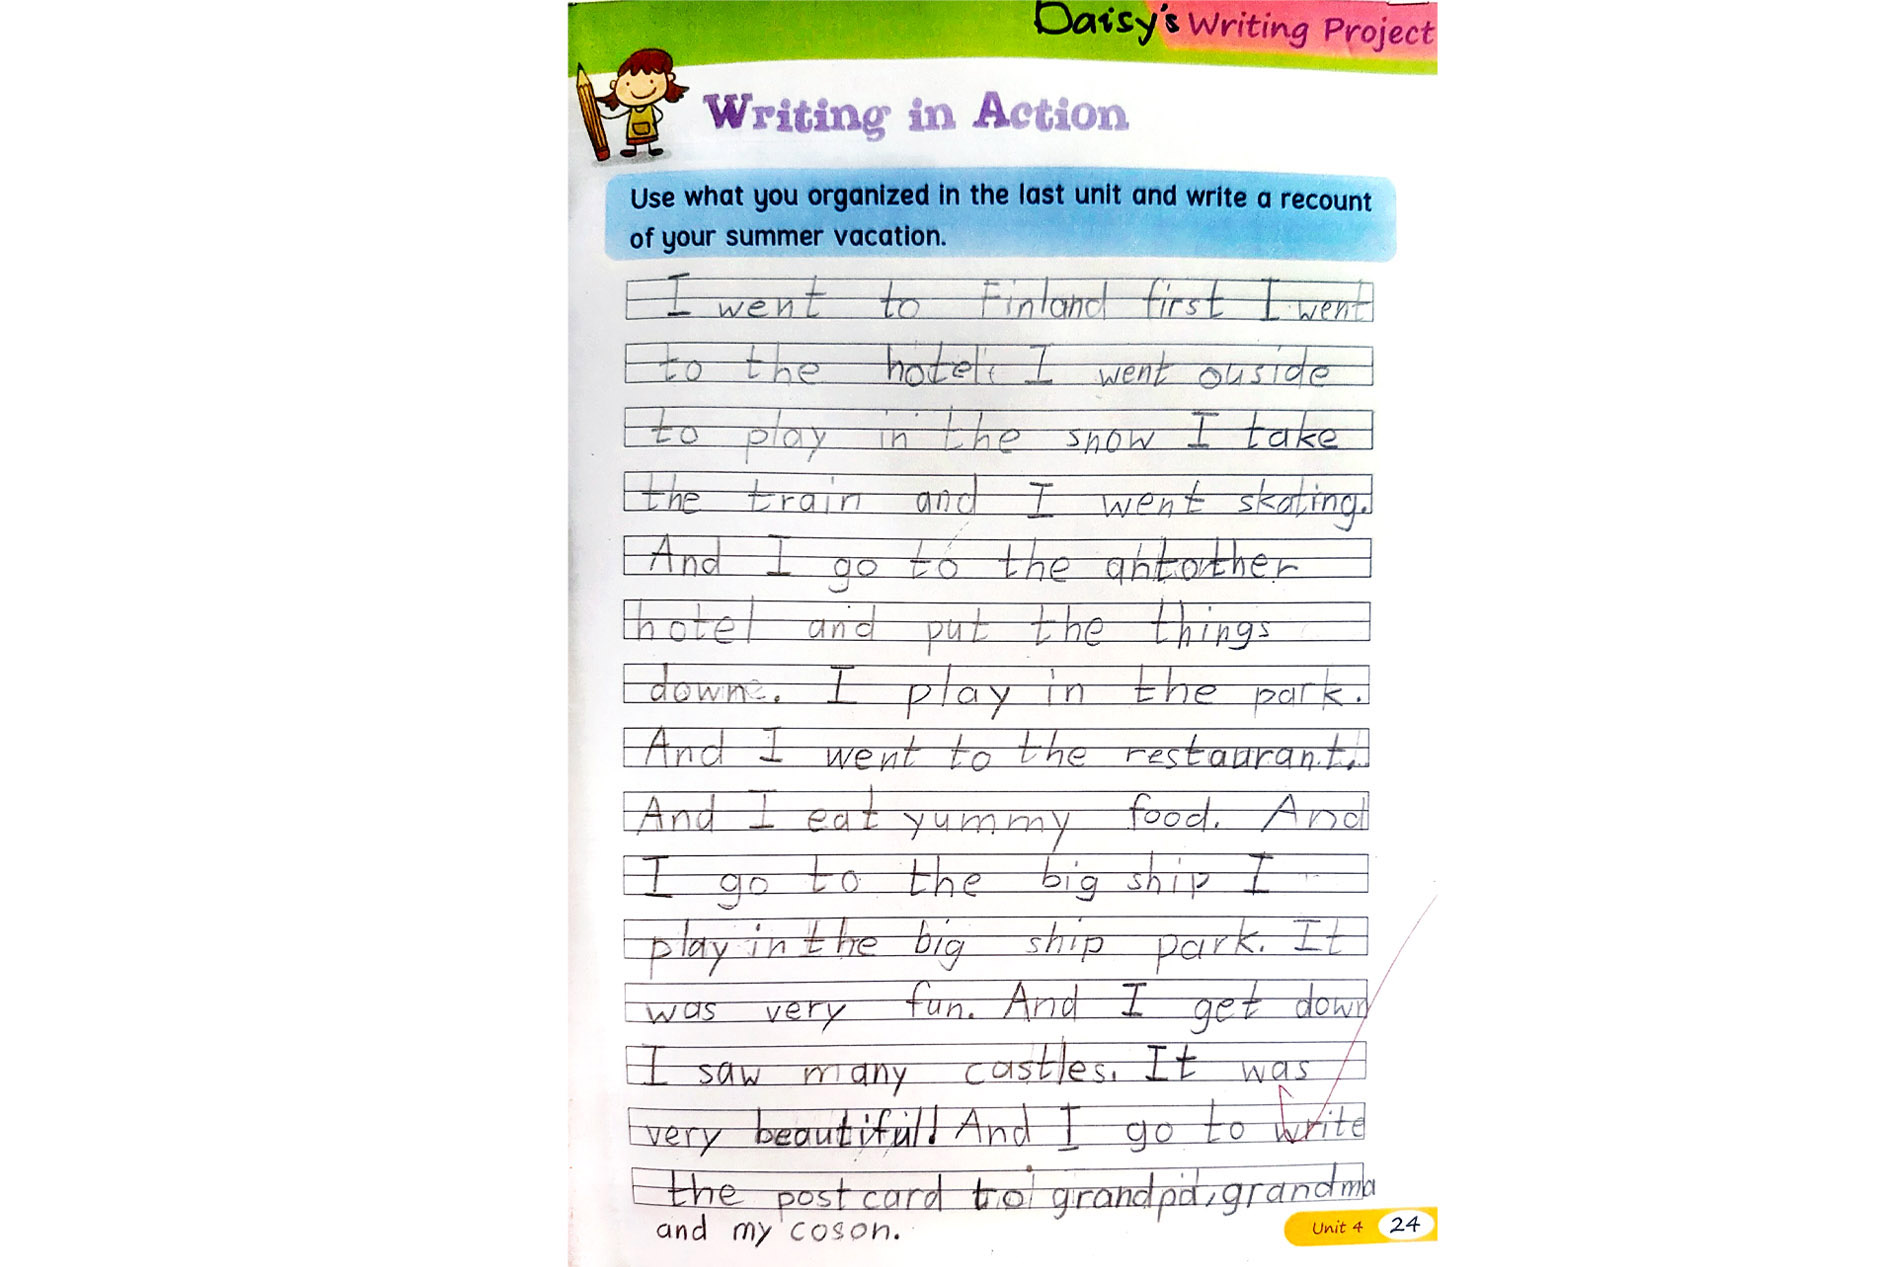 Daisy's Writing Project
Writing in Action
Use what you organized in the last unit and write a recount
of your summer vacation.
I went to Finland first I went
to the hotel. I went ouside
to play in the snow I take
the train and I went skating.
And I go to the
hotel and put the things
downe. I play in the park.
And I went to the restaurant.
And I eat yummy food. And
I go to the big ship I
play in the big ship park. It
was very fun. And I get down
I saw many castles. It was
very beautiful! And I go to write
the post card to grandpa, grandma
and my coson.
Unit 4 24